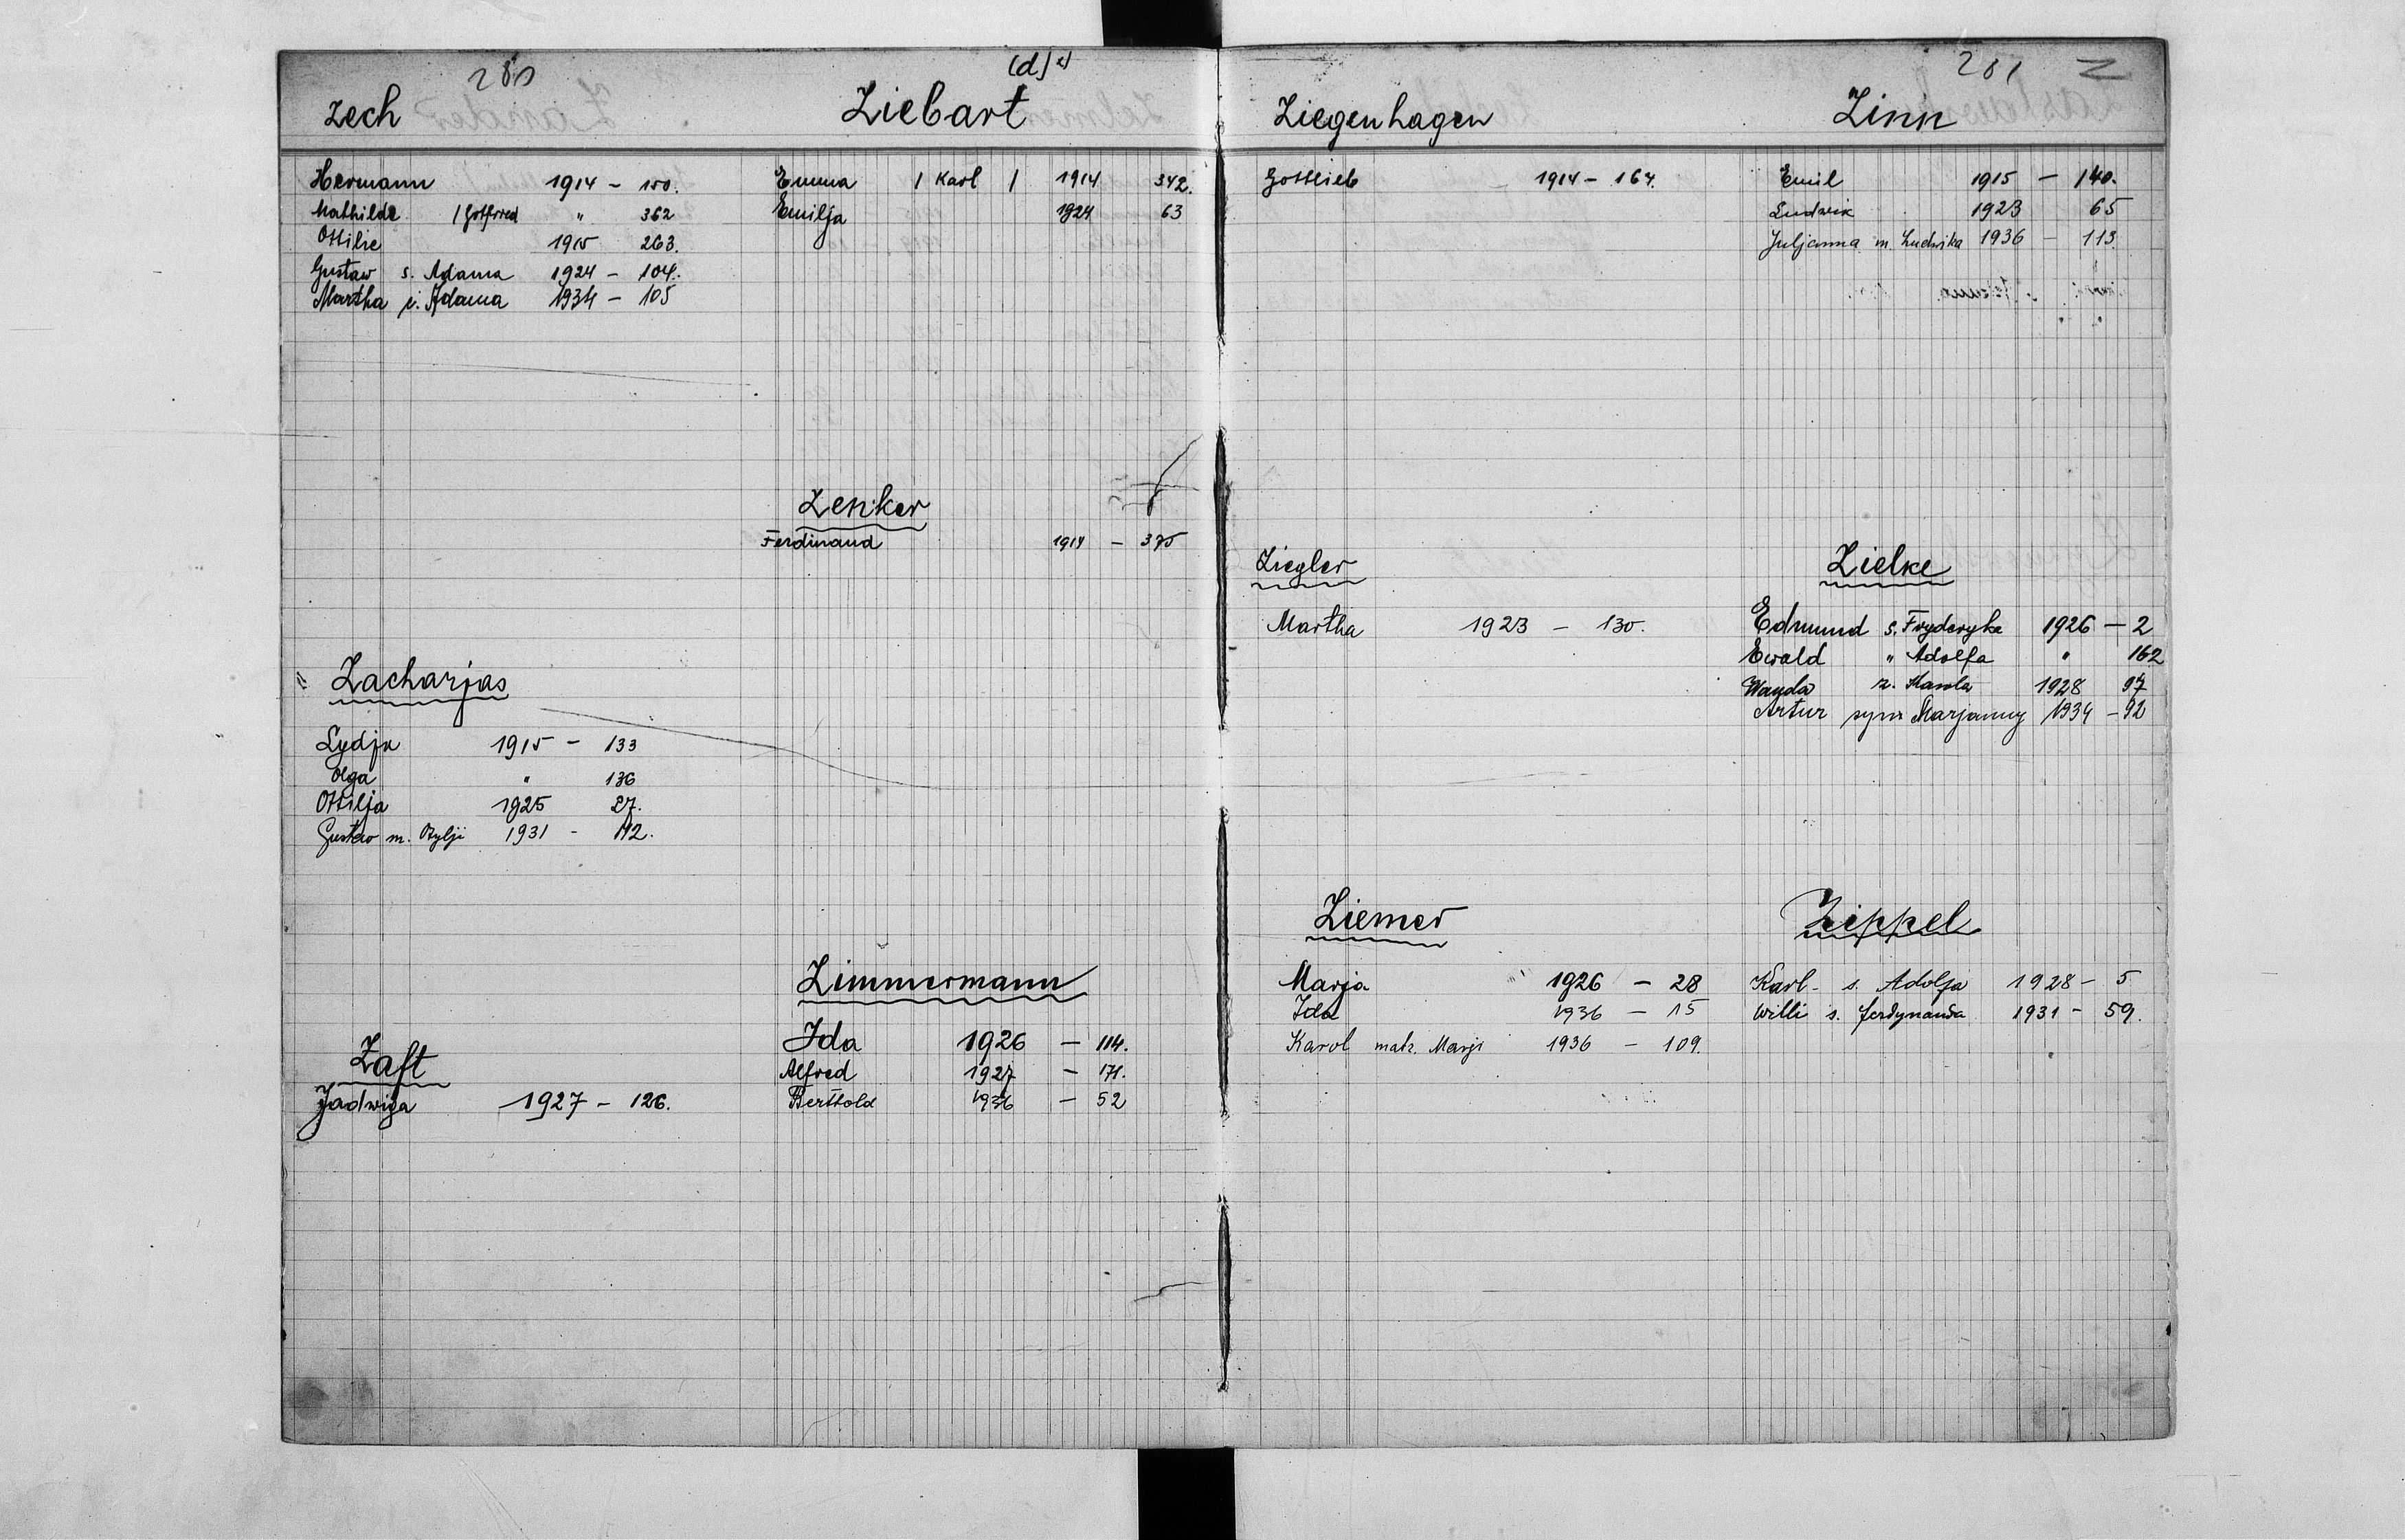 280
Zech
Hermann 1914 - 150.
Mathilde / Gottfried " 362
Ottilie 1915 263.
Gustaw s. Adama 1924 - 104.
Martha c. Adama 1934 - 105
Zacharjas
Lydja 1915 - 133
Olga " 136
Ottilja 1925 27.
Gustaw m. Otylji 1931 - 112.
Zaft
Jadwiga 1927 - 126.
(d)
Ziebart
Emma / Karl / 1914 342.
Emilja 1924 63
Zenker
Ferdinand 1914 - 375
Zimmermann
Ida 1926 - 114.
Alfred 1927 - 171.
Berthold 1936 - 52
281 Z
Ziegenhagen
Gottlieb 1914 - 164.
Ziegler
Martha 1923 - 130.
Ziemer
Marja 1926 - 28
Ida 1936 - 15
Karol małż. Marji 1936 - 109.
Zinn
Emil 1915 - 140.
Ludwik 1923 65
Juljanna m. Ludwika 1936 - 113.
Zielke
Edmund s. Fryderyka 1926 - 2
Ewald " Adolfa " 162
Wanda c. Karola 1928 97
Artur syn Marjanny 1934 - 92
Zippel
Karl s. Adolfa 1928 - 5
Willi s. Ferdynanda 1931 - 59.